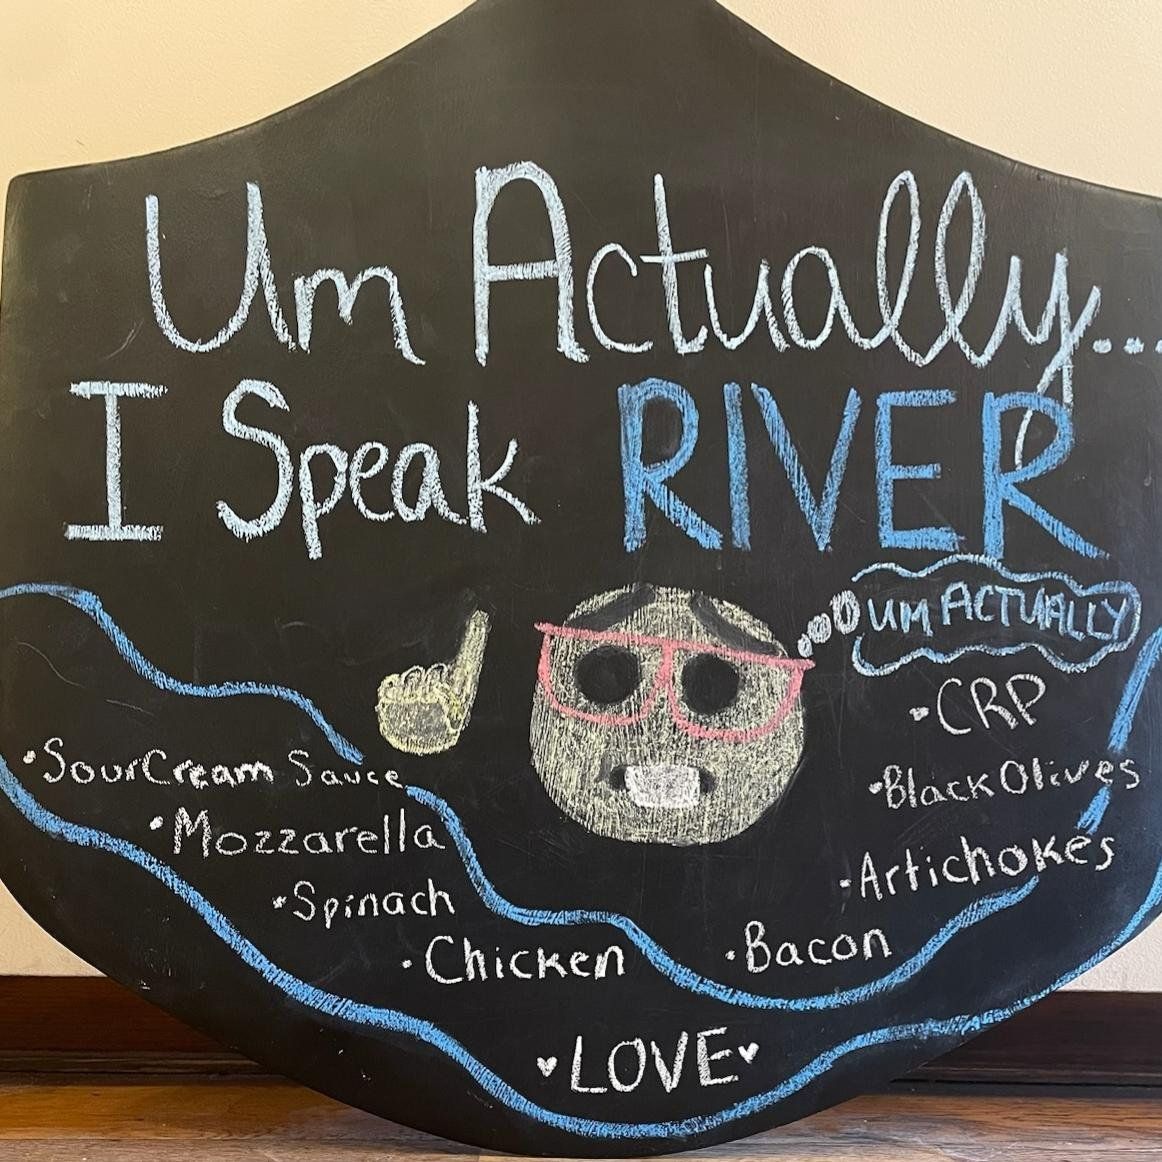 Um Actually...
I Speak RIVER
UM ACTUALLY
•SourCream Sauce
•Mozzarella
•Spinach
•Chicken
•CRP
•Black Olives
•Artichokes
•Bacon
♥LOVE♥